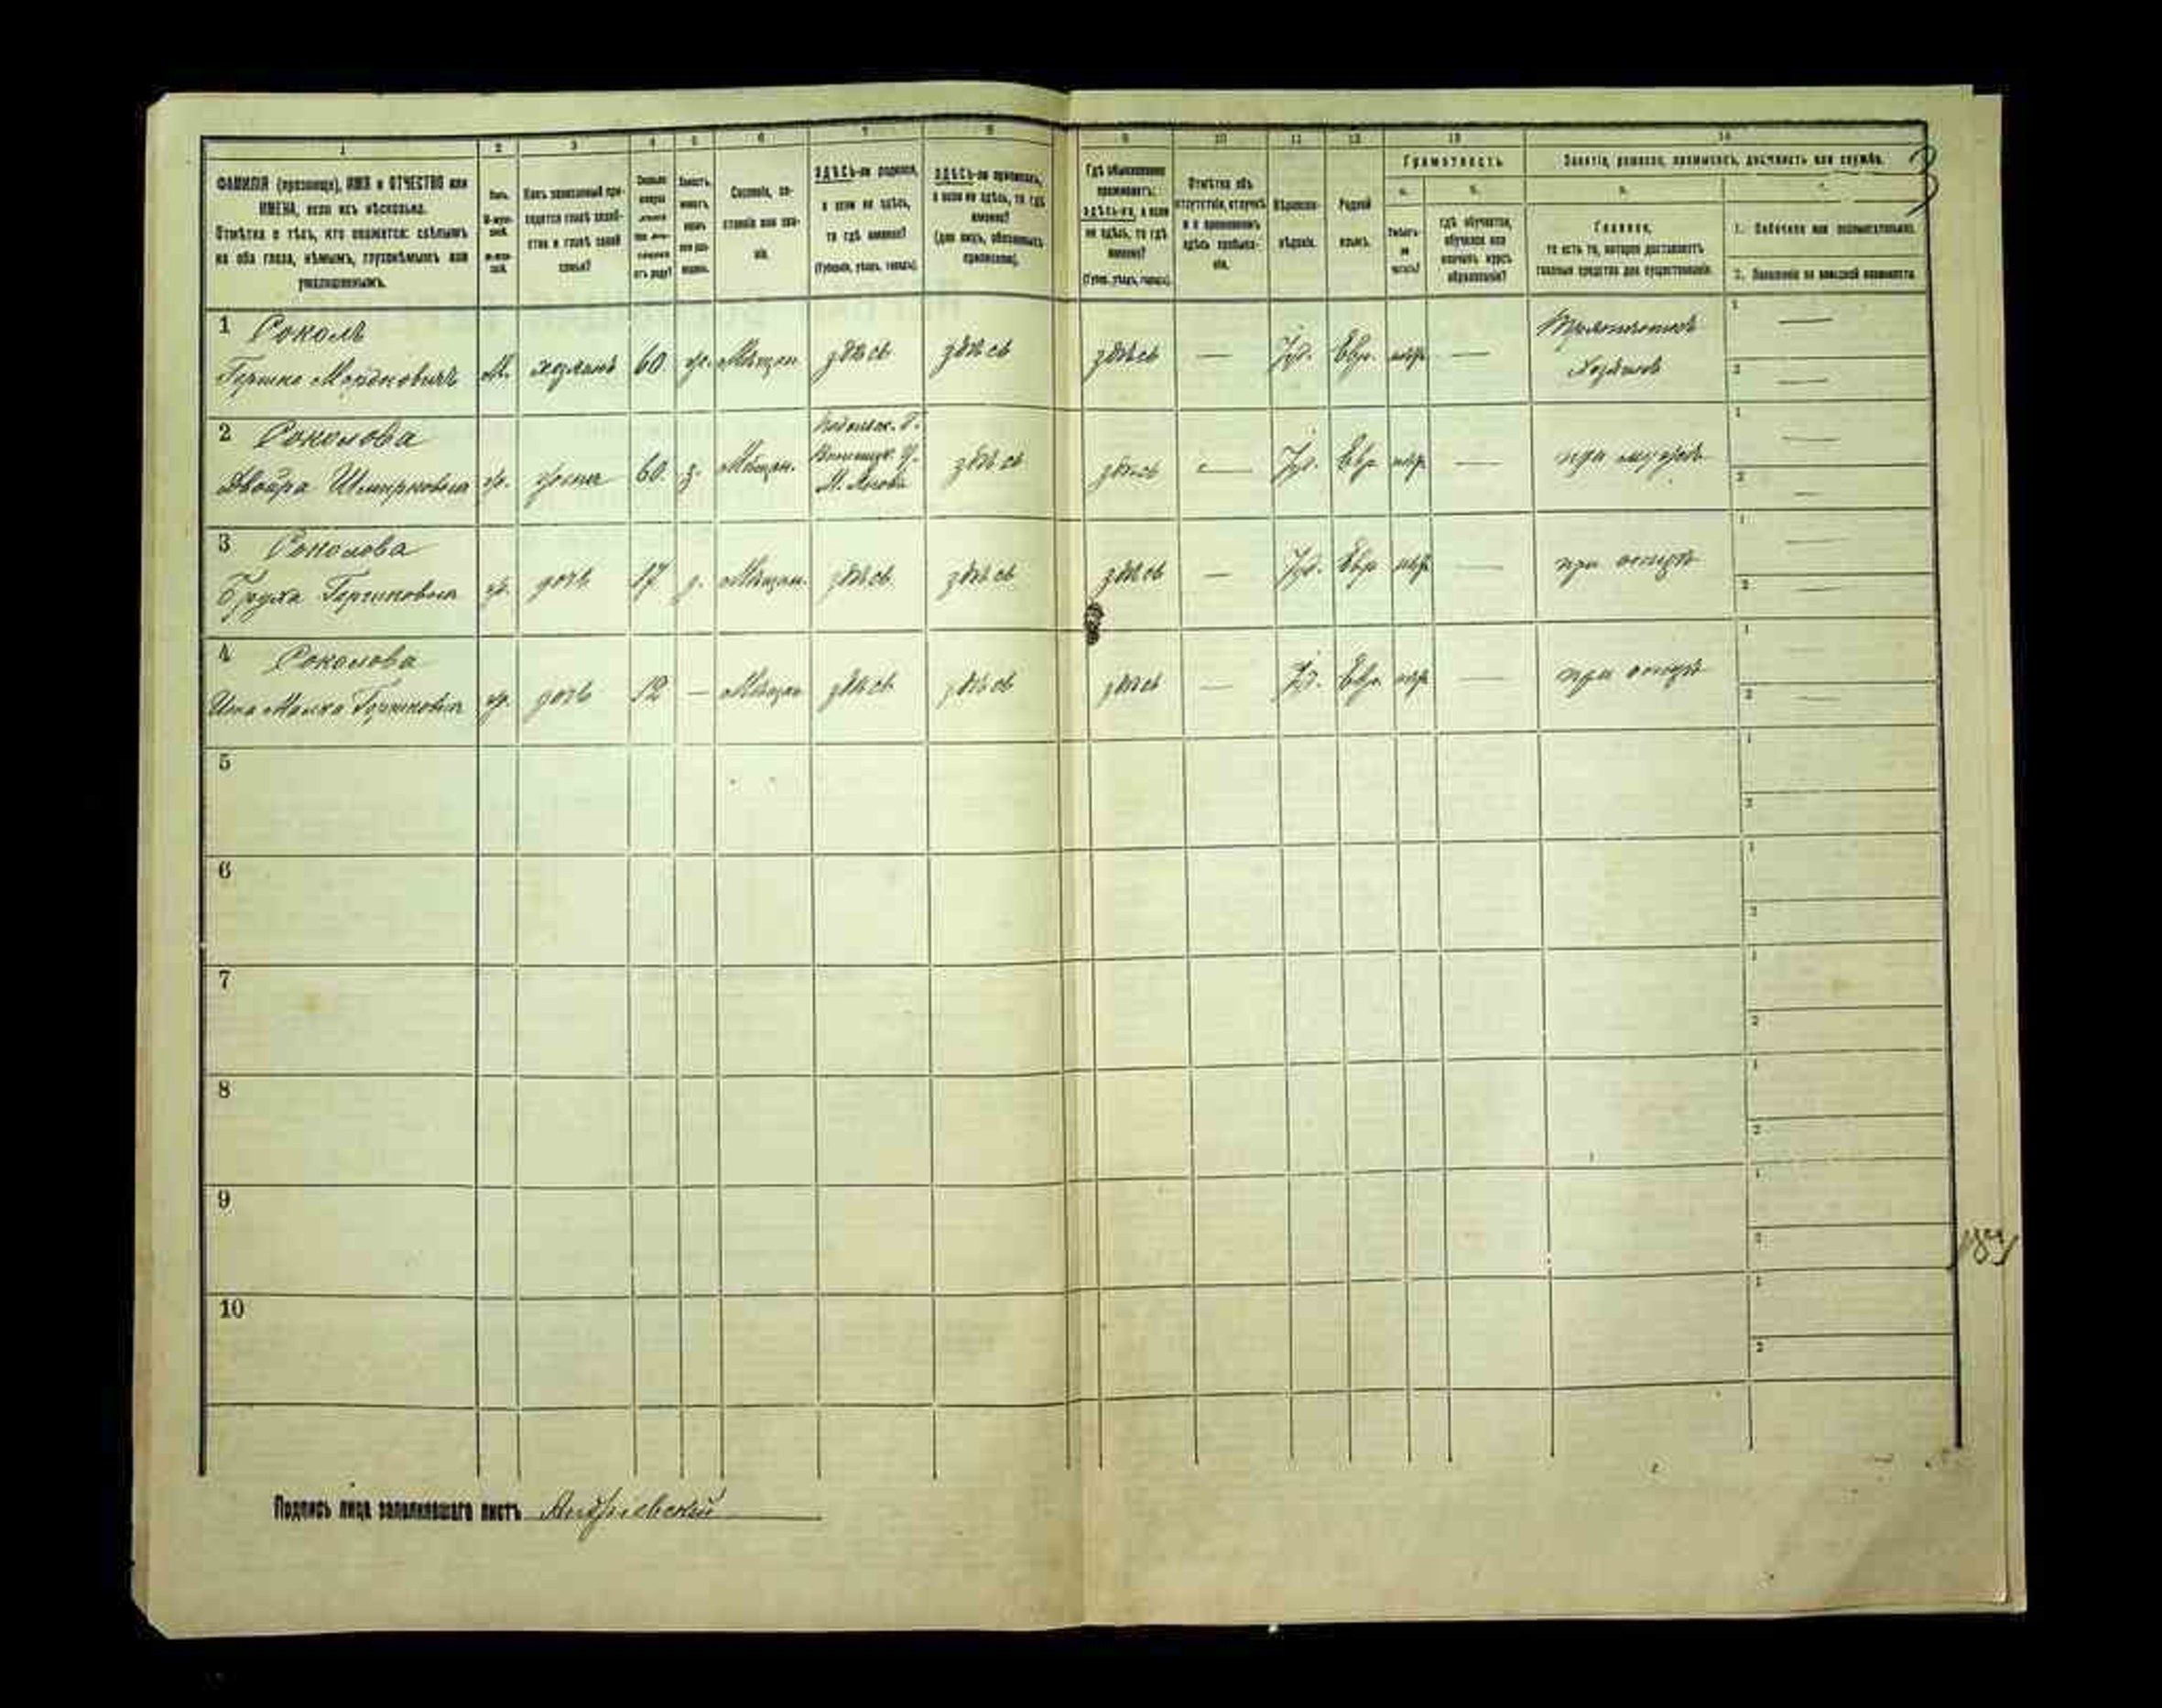 1 2 3 4 5 6 7 8 9 10 11 12 13 14
ФАМИЛІЯ (прозвище), ИМЯ и ОТЧЕСТВО или
ИМЕНА, если ихъ нѣсколько.
Отмѣтка о тѣхъ, кто окажется: слѣпымъ
на оба глаза, нѣмымъ, глухонѣмымъ или
умалишеннымъ.
Полъ.
Какъ записанный при-
ходится главѣ хозяй-
ства и главѣ своей
семьи?
Сословіе, со-
стояніе или зва-
ніе.
ЗДѢСЬ-ли родился,
а если не здѣсь,
то гдѣ именно?
(Губернія, уѣздъ, городъ).
ЗДѢСЬ-ли приписанъ,
а если не здѣсь, то гдѣ
именно?
(для лицъ, обязанныхъ
припискою).
Гдѣ обыкновенно
проживаетъ:
ЗДѢСЬ-ЛИ, а если
не здѣсь, то гдѣ
именно?
(Губер., уѣздъ, городъ).
Отмѣтка объ
отсутствіи, отлучкѣ
и о временномъ
здѣсь пребыва-
ніи.
Вѣроиспо-
вѣданіе.
Родной
языкъ.
Грамотность
а.
Умѣетъ-
ли
читать?
б.
гдѣ обучается,
обучался или
кончилъ курсъ
образованія?
Занятіе, ремесло, промыселъ, должность или служба.
3
а.
Главное,
то есть то, которое доставляетъ
главныя средства для существованія.
1. Побочное или вспомогательное.
2. Положеніе по воинской повинности.
1 Соколъ
Гершко Мордковичъ М. хозяинъ 60 ж. Мѣщан. здѣсь здѣсь здѣсь — Іуд. Евр. нѣтъ —
2 Соколова
Двойра Шмирковна ж. жена 60 з. Мѣщан.
Подольск. Г.
Винницк. У.
М. Янова
здѣсь здѣсь — Іуд. Евр. нѣтъ — при мужѣ
3 Соколова
Бруха Гершковна ж. дочь 17 д. Мѣщан. здѣсь здѣсь здѣсь — Іуд. Евр. нѣтъ — при отцѣ
4 Соколова
Малка Гершковна ж. дочь 12 — Мѣщан. здѣсь здѣсь здѣсь — Іуд. Евр. нѣтъ — при отцѣ
5
6
7
8
9
10
Подпись лица заполнившаго листъ Андріевскій